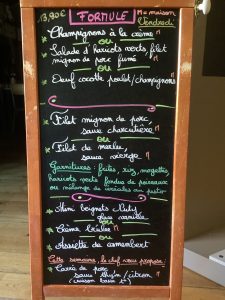 13,90€ FORMULE M = maison
Vendredi
* Champignons à la crème M
ou
* Salade d'haricots verts filet
mignon de porc fumé M
ou
* Oeuf cocotte poulet/champignons
M
* Filet mignon de porc M
sauce charcutière
ou
* Filet de merlu, M
sauce
ou
Garnitures: frites, riz, mogettes
haricots verts fondue de poireaux
ou mélange de céréales au pistou
* Mini beignets
ou
* Crème brûlée M
ou
* Assiette de camembert
Cette semaine, le chef vous propose:
* Carré de porc M
sauce thym/citron
(cuisson basse t°)